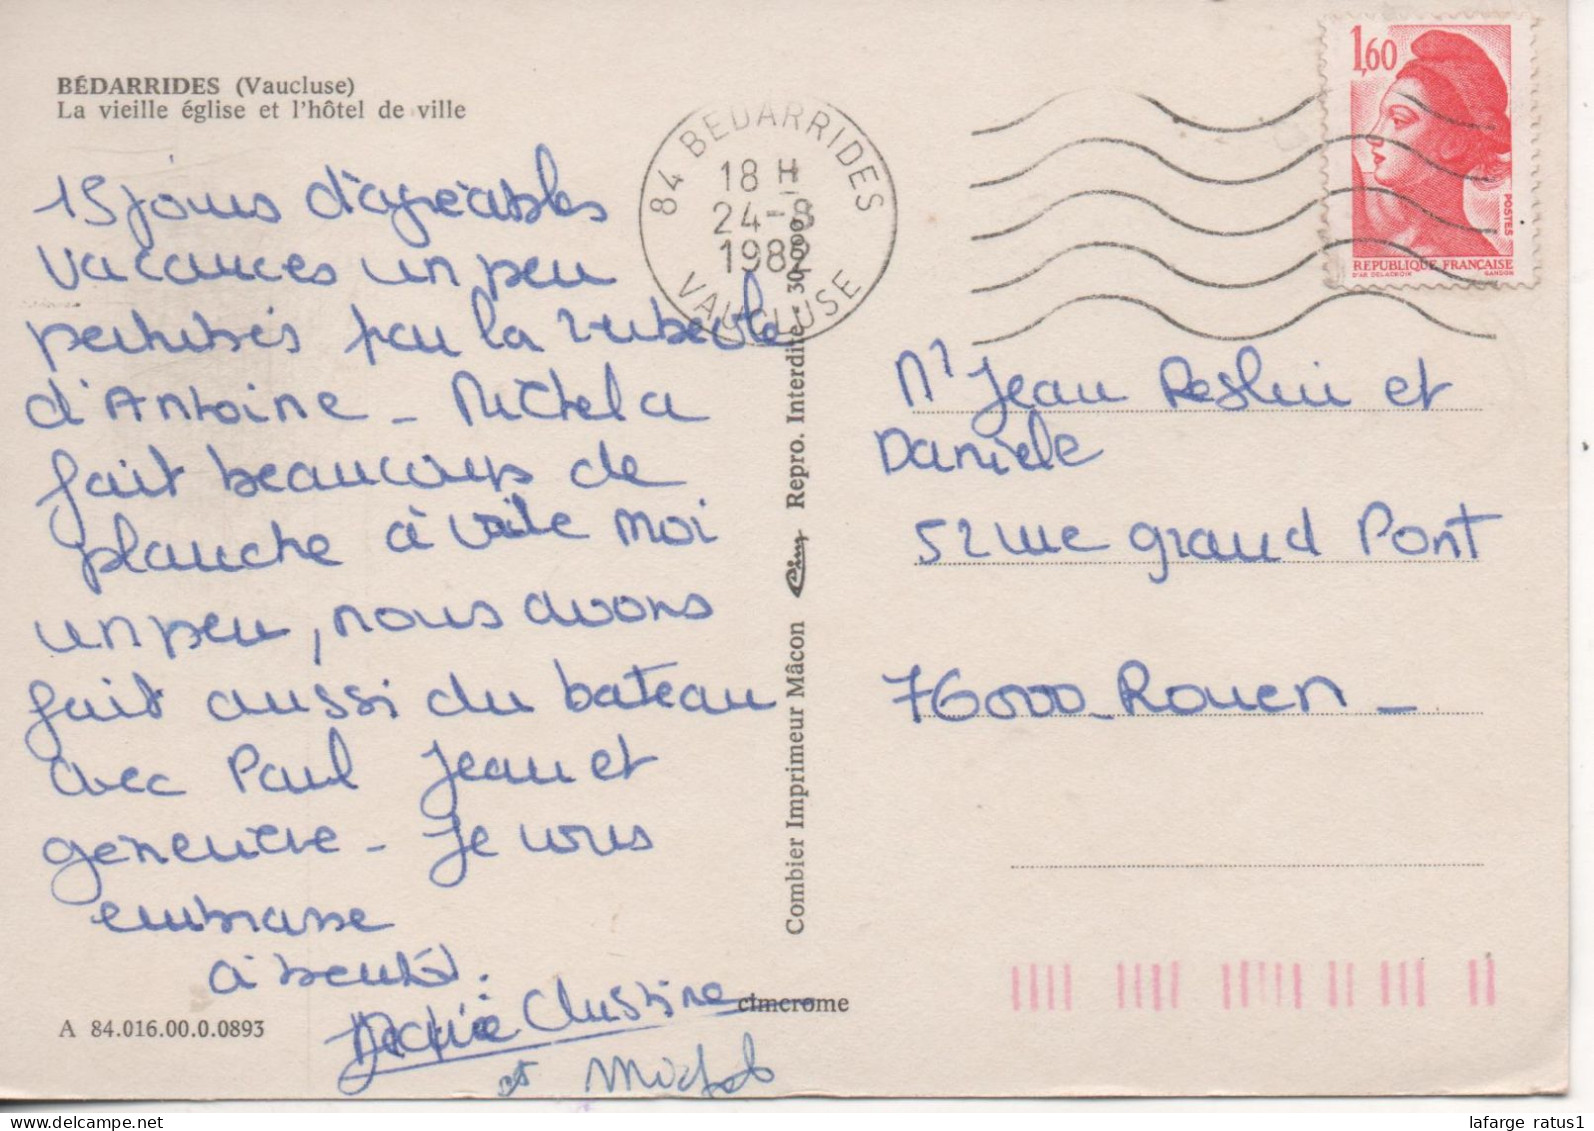 BÉDARRIDES (Vaucluse)
La vieille église et l'hôtel de ville
15 jours d'agréables
vacances un peu
perturbés par la rubéole
d'Antoine - Michel a
fait beaucoup de
planche à voile moi
un peu, nous avons
fait aussi du bateau
avec Paul Jean et
geneviève - Je vous
embrasse
à bientôt.
Marie Christine
et Michel
A 84.016.00.0.0893
84 BEDARRIDES
18 H
24-8
1982
VAUCLUSE
Combier Imprimeur Mâcon Cim Repro. Interdite - 30.000
cimcrome
1,60
POSTES
REPUBLIQUE FRANÇAISE
D'AP. DELACROIX GANDON
Mr Jean et
Danièle
52 rue grand Pont
76000 - Rouen -
lafarge ratus1